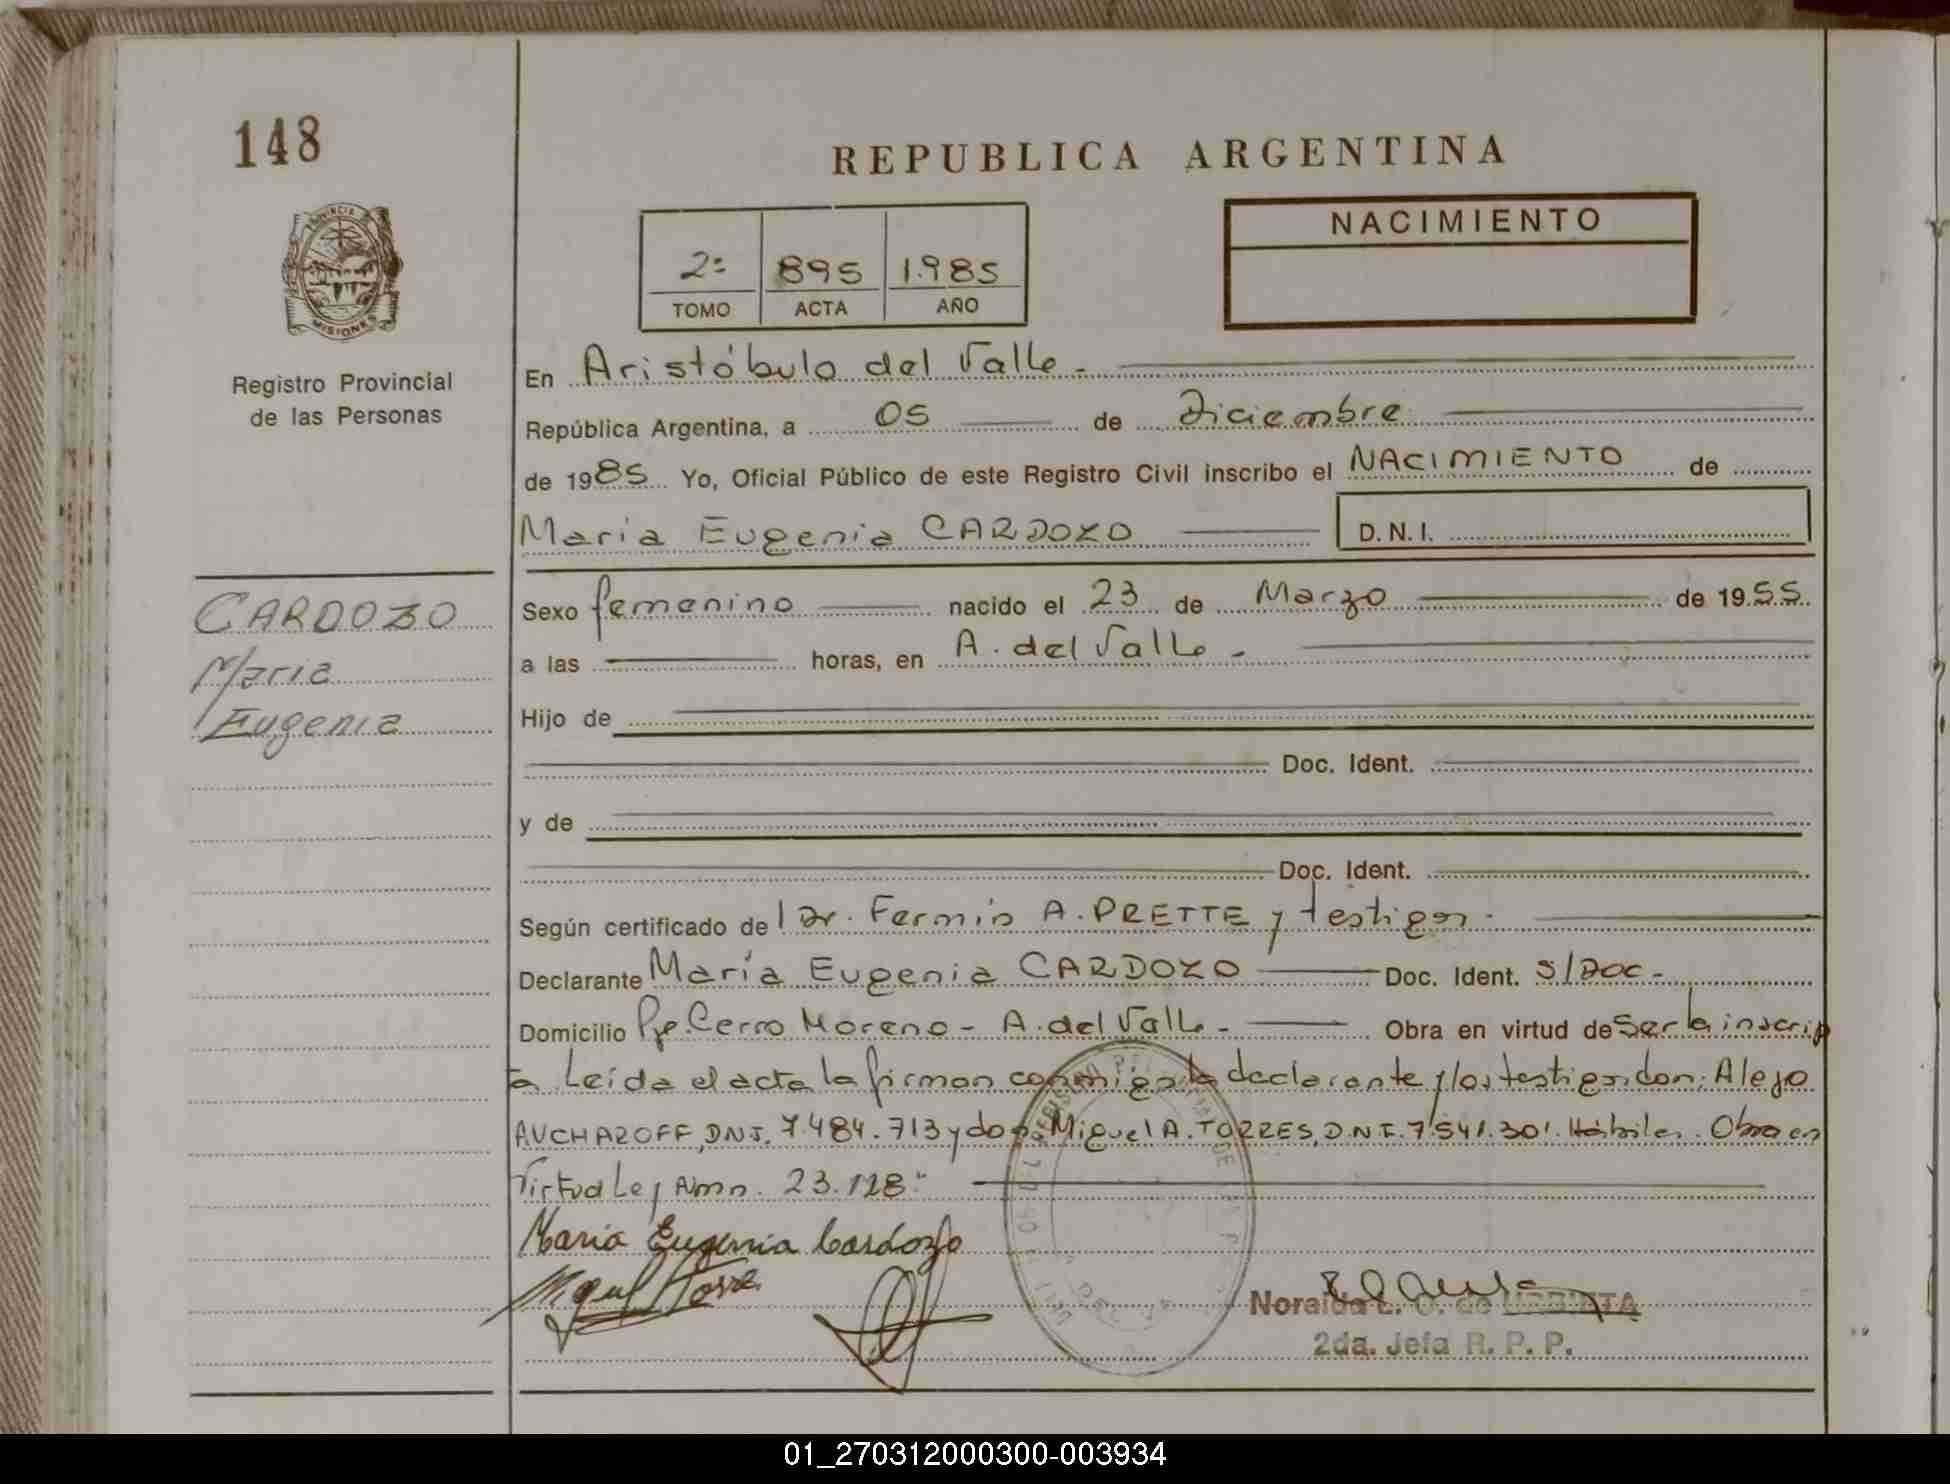 148
REPUBLICA ARGENTINA
PROVINCIA
MISIONES
Registro Provincial
de las Personas
2º 895 1.985
TOMO ACTA AÑO
NACIMIENTO
En Aristóbulo del Valle.-
República Argentina, a 05 de Diciembre
de 1985 Yo, Oficial Público de este Registro Civil inscribo el NACIMIENTO de
María Eugenia CARDOZO D.N.I.
CARDOZO
Maria
Eugenia
Sexo femenino nacido el 23 de Marzo de 1955
a las horas, en A. del Valle-
Hijo de
Doc. Ident.
y de
Doc. Ident.
Según certificado de Dr. Fermín A. PRETTE y testigos.
Declarante María Eugenia CARDOZO Doc. Ident. S/Doc-
Domicilio Pje. Cerro Moreno - A. del Valle- Obra en virtud de Ser la inscrip
ta Leída el acta la firman conmigo la declarante y los testigos don: Alejo
AUCHAROFF, DNI. 7.484.713 y don Miguel A. TORRES, D.N.I. 7.541.301. Hábiles. Obra en
Virtud Ley Amn. 23.128.-
Maria Eugenia Cardozo
Miguel Torre
Noraida E. O. de
2da. Jefa R. P. P.
01_270312000300-003934